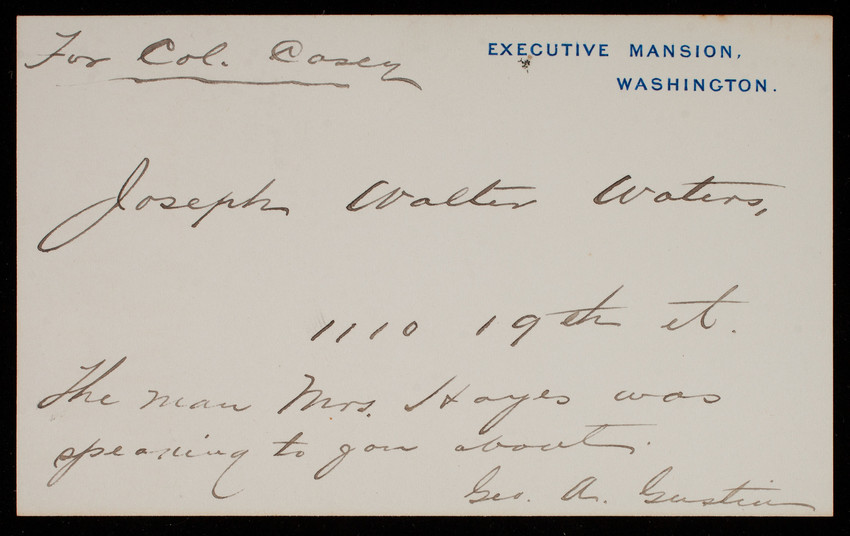 For Col. Casey
EXECUTIVE MANSION,
WASHINGTON.
Joseph Walter Waters,
1110 19th st.
The man Mrs. Hayes was
speaking to you about.
Geo. A. Gustin